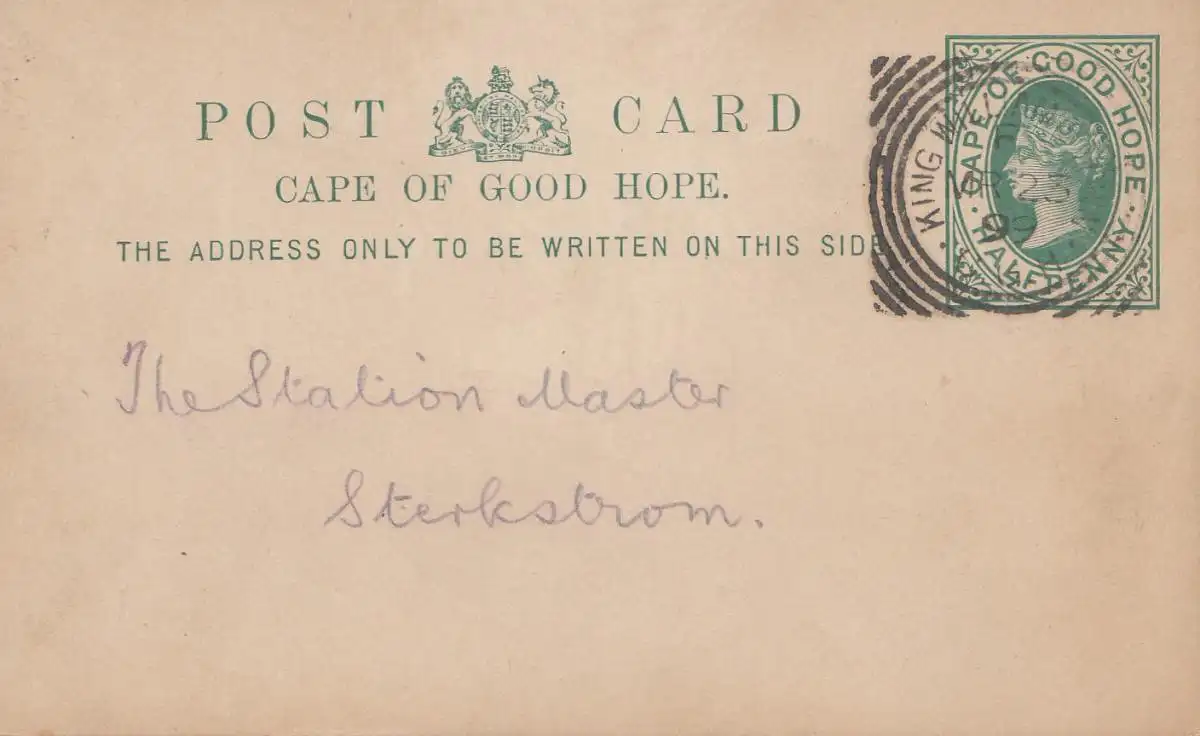 POST CARD
CAPE OF GOOD HOPE.
THE ADDRESS ONLY TO BE WRITTEN ON THIS SIDE.
CAPE OF GOOD HOPE
HALFPENNY
KING W
23
The Station Master
Sterkstrom.